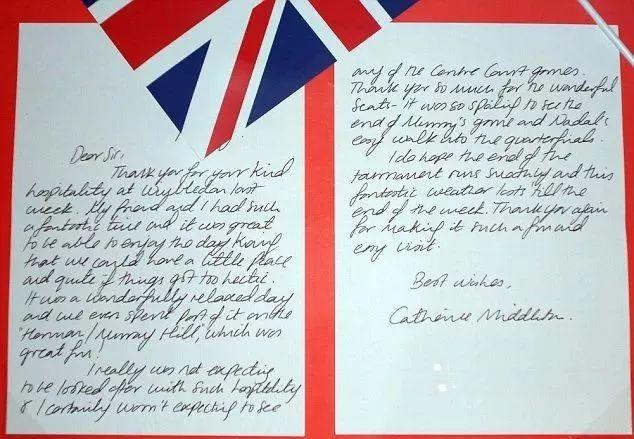 Dear Sir,
Thank you for your kind
hospitality at Wimbledon last
week. My friend and I had such
a fantastic time and it was great
to be able to enjoy the day knowing
that we could have a little peace
and quite if things got too hectic.
It was a wonderfully relaxed day
and we even spent part of it on the
"Henman/Murray Hill", which was
great fun!
I really was not expecting
to be looked after with such hospitality
& I certainly wasn't expecting to see
any of the Centre Court games.
Thank you so much for the wonderful
seats - it was so spoiling to see the
end of Murray's game and Nadal's
easy walk into the quarterfinals.
I do hope the end of the
tournament runs smoothly and this
fantastic weather lasts till the
end of the week. Thank you again
for making it such a fun and
easy visit.
Best wishes,
Catherine Middleton.